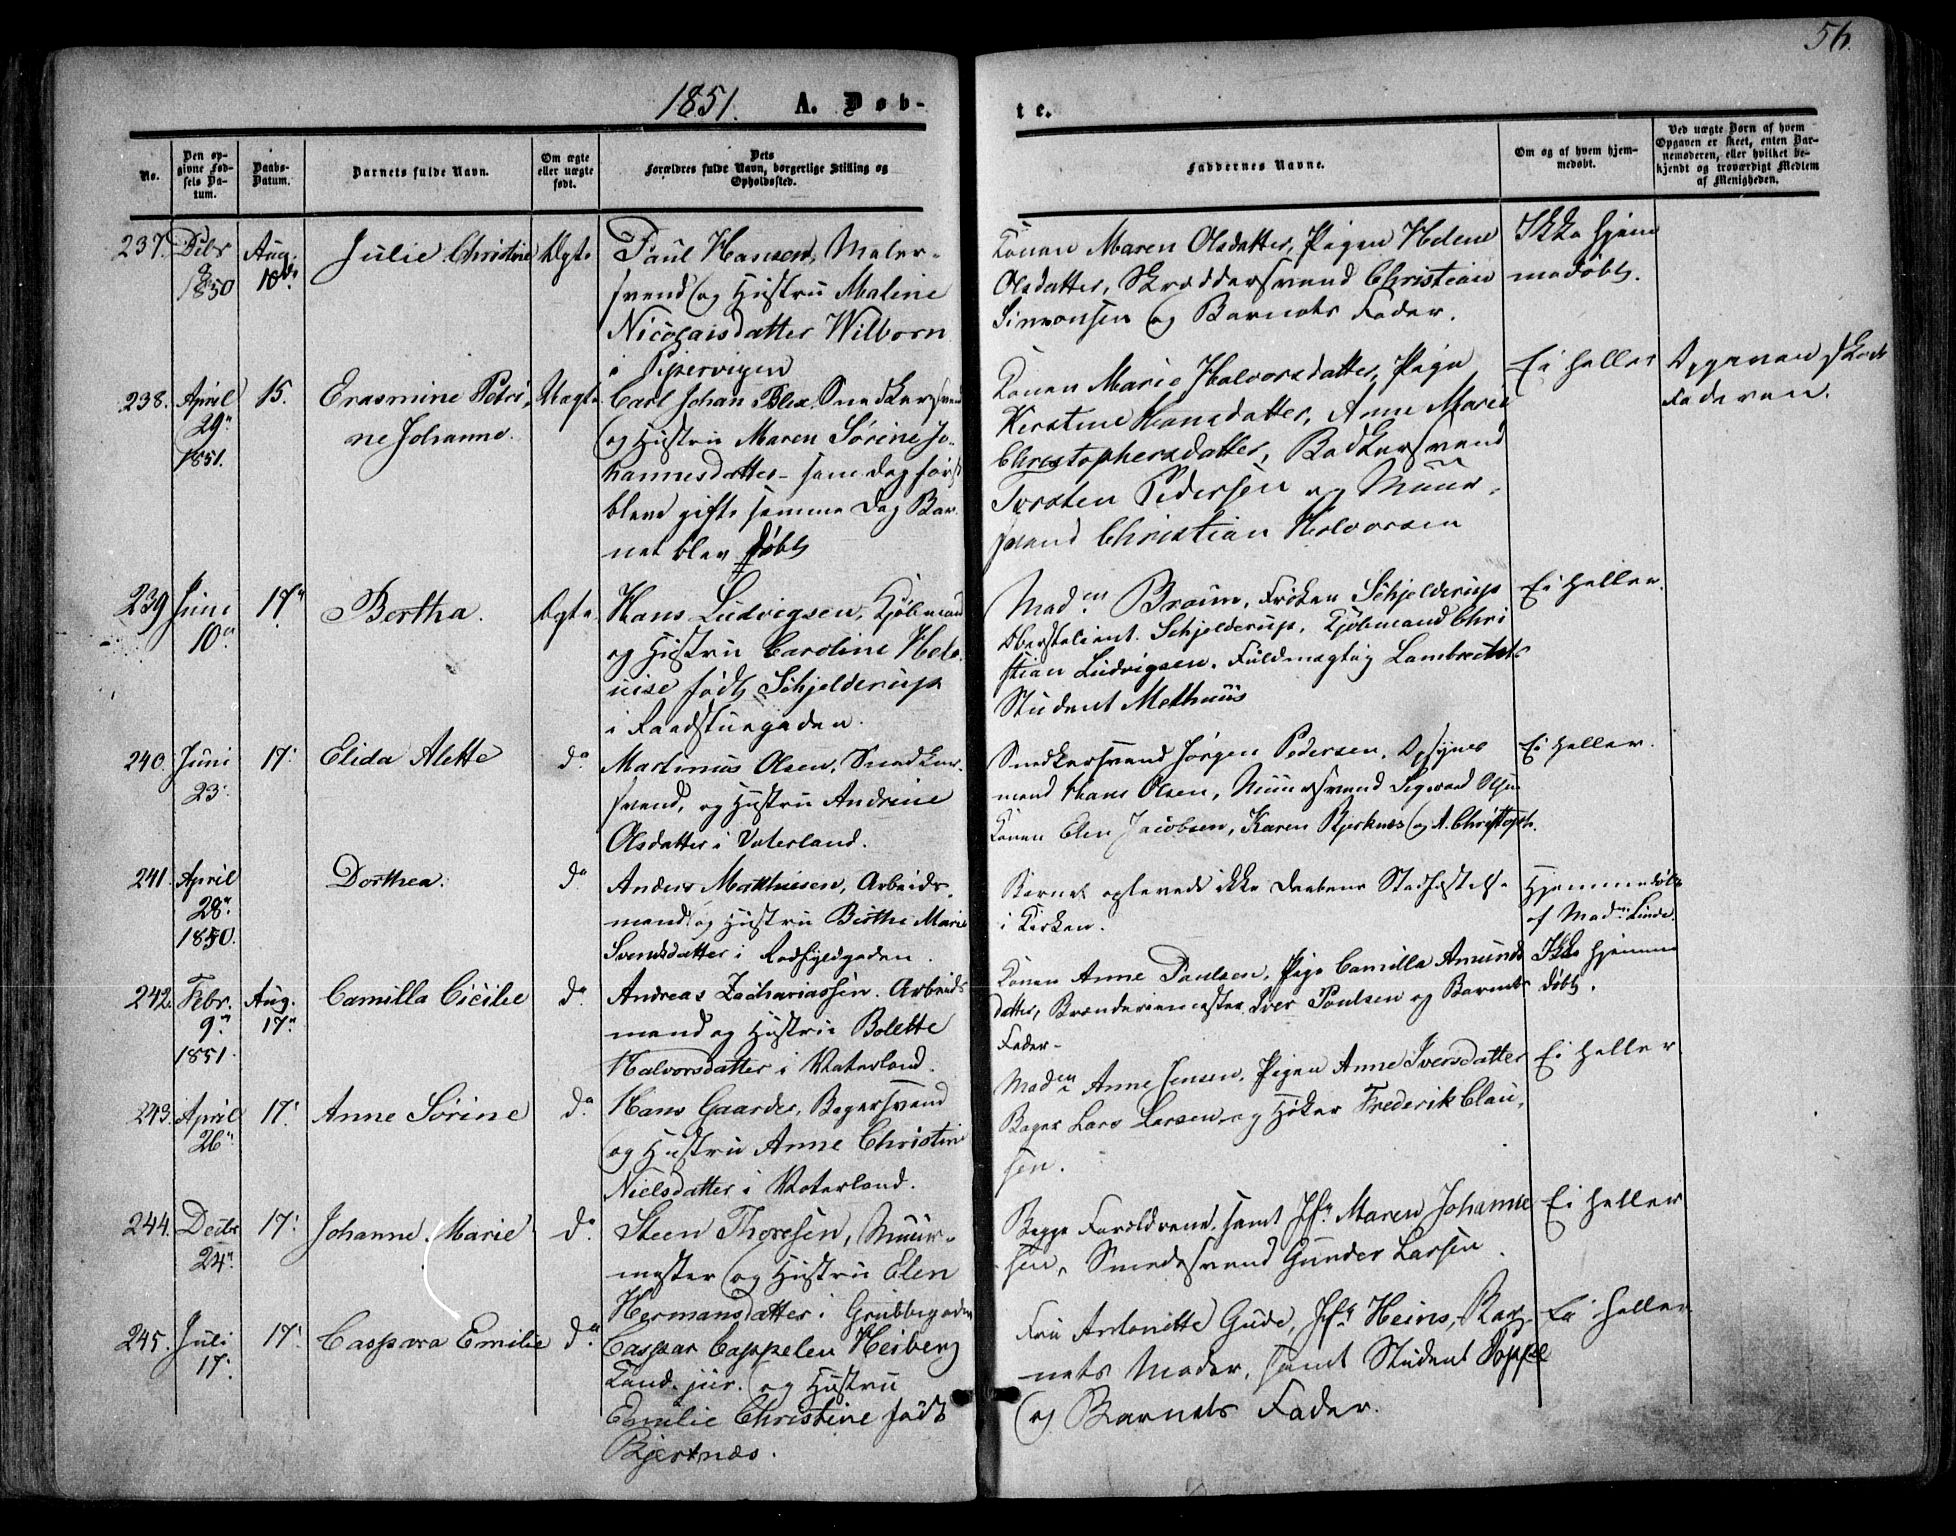 56.
1851. A. Døb-
te.
No.
Den op-
givne Fød-
sels Da-
tum.
Daabs-
Datum.
Barnets fulde Navn.
Om ægte
eller uægte
født.
Dets
Forældres fulde Navn, borgerlige Stilling og
Opholdssted.
Faddernes Navne.
Om og af hvem hjem-
medøbt.
Ved uægte Børn af hvem
Opgaven er skeet, enten Bar-
nemoderen, eller hvilket be-
kjendt og troværdigt Medlem
af Menigheden.
237. Aug. 10de Julie Christine Ægte
1850
Paul Hansen, Maler-
svend og Hustru Maline
Nicolaisdatter Wilborn
i Pipervigen
Konen Maren Olsdatter, Pigen Helene
Olsdatter, Skræddersvend Christian
Simonsen og Barnets Fader.
Ikke hjem
medøbt.
238. April 29n 1851. 15. Erasmine Petri-
ne Johanne. Uægte
Carl Johan Blix, Snedkersvend
og Hustru Maren Sørine Jo-
hannesdatter - som dog først
bleve gifte samme Dag Bar-
net blev døbt
Konen Marie Halvorsdatter, Pige
Kirstine Hansdatter, Anne Marie
Christophersdatter, Bødkersvend
Torsten Pedersen og Muur-
svend Christian Halvorsen
Ei heller
Opgaven skede
Faderen.
239 Juni 10n 17n Bertha. Ægte
Hans Ludvigsen, Kjøbmand
og Hustru Caroline Helo-
uise født Schjelderup
i Raadstuegaden.
Maden Braun, Frøken Schjelderup
Oberstlieut. Schjelderup, Kjøbmand Chri
stian Ludvigsen, Fuldmægtig Lambrechts
Student Methuus
Ei heller.
240. Juni 23. 17. Elida Alette do
Martinus Olsen, Snedker-
svend, og Hustru Andrine
Olsdatter i Vaterland.
Snedkersvend Jørgen Pedersen, Opsyns
mand Hans Olsen, Muursvend Sigvard Olsen
Konen Elen Jacobsen, Karen Bjerknæs og A. Christoph.
Ei heller.
241. April 28n 1850. Dorthea. do
Anders Matthiesen, Arbeids-
mand og Hustru Birthe Marie
Svendsdatter i Rødfyldgaden.
Barnet oplevede ikke Daabens Stadfæstelse
i Kirken.
Hjemmedøbt
af Maden Linde.
242. Febr. 9n 1851. Aug. 17n Camilla Cicilie do
Andreas Zachariassen. Arbeids
mand og Hustru Bolette
Halvorsdatter i Vaterland.
Konen Anne Paulsen, Pige Camilla Amunds
datter, Brænderiemester Iver Poulsen og Barnets
Fader.
Ikke hjemme
døbt.
243. April 26n 17. Anne Sørine do
Hans Gaarder, Bagersvend
og Hustru Anne Christine
Nielsdatter i Vaterland.
Maden Anne Jensen, Pigen Anne Iversdatter
Bager Lars Larsen og Høker Frederik Clau-
sen.
Ei heller.
244. Decbr 24n 17. Johanne Marie do
Steen Thoresen, Muur-
mester og Hustru Elen
Hermansdatter i Grubbegaden
Begge Forældrene, samt Jfr Maren Johanne
sen, Smedesvend Gunder Larsen.
Ei heller
245. Juli 17. 17. Caspara Emilie do
Caspar Cappelen Heiberg
Cand. jur. og Hustru
Emilie Christine født
Bjerknæs.
Fru Antonette Gude, Jfr Heins, Bar-
nets Moder, samt Student Poppe
og Barnets Fader.
Ei heller